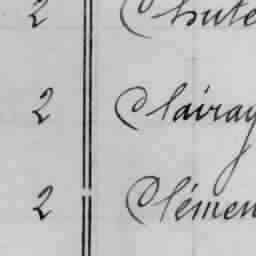 2 Chute
2 Clairay
2 Clémen